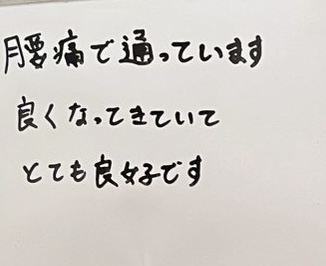 腰痛で通っています
良くなってきていて
とても良好です